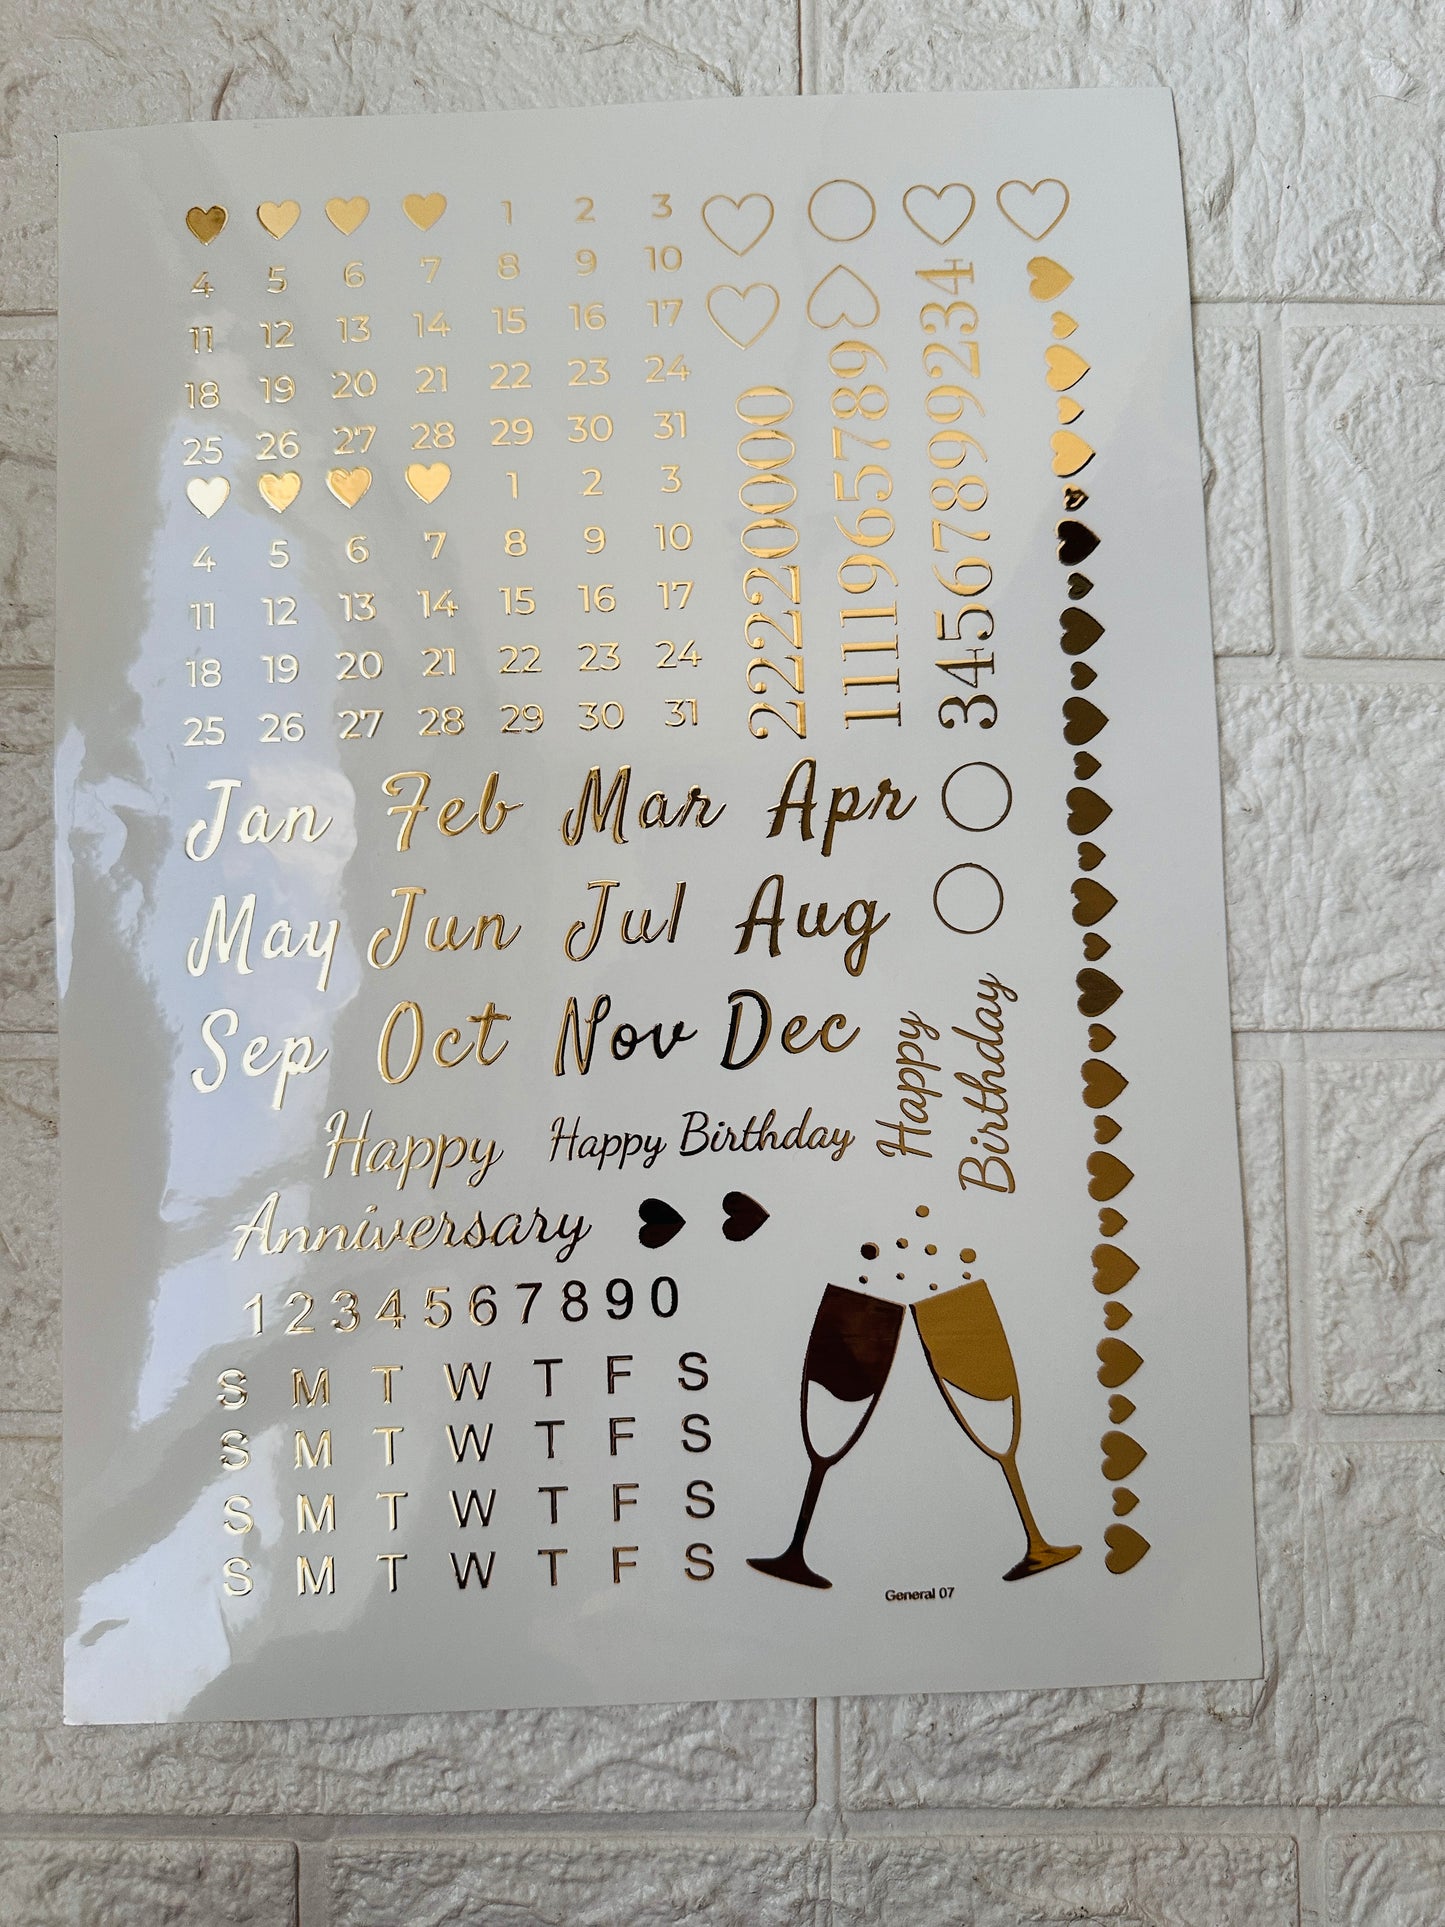 1 2 3
4 5 6 7 8 9 10
11 12 13 14 15 16 17
18 19 20 21 22 23 24
25 26 27 28 29 30 31
1 2 3
4 5 6 7 8 9 10
11 12 13 14 15 16 17
18 19 20 21 22 23 24
25 26 27 28 29 30 31
22220000
1111965789
34567899234
Jan Feb Mar Apr
May Jun Jul Aug
Sep Oct Nov Dec
Happy
Anniversary
Happy Birthday
Happy
Birthday
1 2 3 4 5 6 7 8 9 0
S M T W T F S
S M T W T F S
S M T W T F S
S M T W T F S
General 07